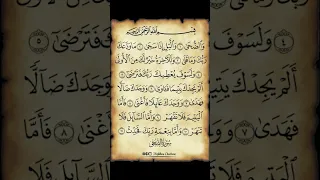 بِسْمِ ٱللَّهِ ٱلرَّحْمَٰنِ ٱلرَّحِيمِ
وَٱلضُّحَىٰ ١ وَٱلَّيْلِ إِذَا سَجَىٰ ٢ مَا وَدَّعَكَ
رَبُّكَ وَمَا قَلَىٰ ٣ وَلَلْءَاخِرَةُ خَيْرٌ لَّكَ مِنَ ٱلْأُولَىٰ
٤ وَلَسَوْفَ يُعْطِيكَ رَبُّكَ فَتَرْضَىٰ ٥
أَلَمْ يَجِدْكَ يَتِيمًا فَـَٔاوَىٰ ٦ وَوَجَدَكَ ضَآلًّا
فَهَدَىٰ ٧ وَوَجَدَكَ عَآئِلًا فَأَغْنَىٰ ٨ فَأَمَّا
ٱلْيَتِيمَ فَلَا تَقْهَرْ ٩ وَأَمَّا ٱلسَّآئِلَ فَلَا
تَنْهَرْ ١٠ وَأَمَّا بِنِعْمَةِ رَبِّكَ فَحَدِّثْ ١١